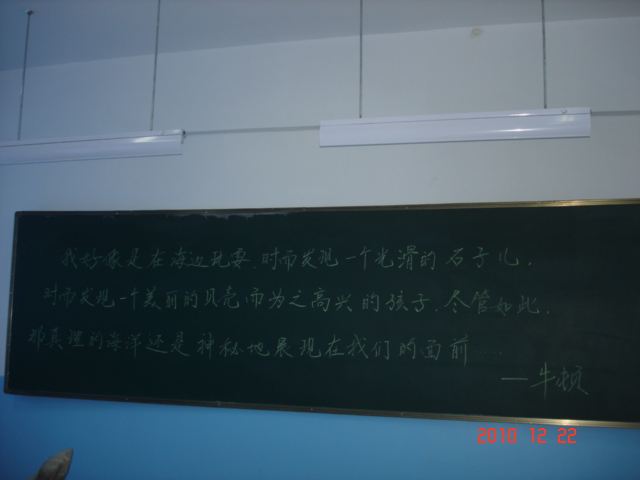 我好像是在海边玩耍,时而发现一个光滑的石子儿,
时而发现一个美丽的贝壳而为之高兴的孩子.尽管如此,
那真理的海洋还是神秘地展现在我们的面前
—牛顿
2010 12 22